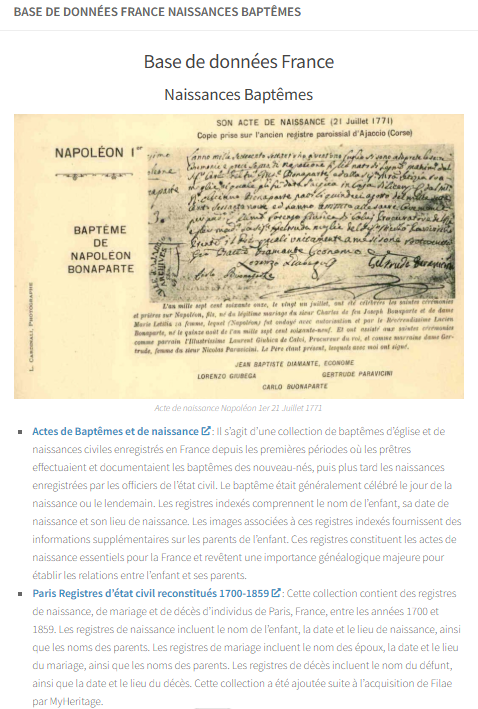 BASE DE DONNÉES FRANCE NAISSANCES BAPTÊMES
Base de données France
Naissances Baptêmes
SON ACTE DE NAISSANCE (21 Juillet 1771)
Copie prise sur l'ancien registre paroissial d'Ajaccio (Corse)
NAPOLÉON Ier
BAPTÊME
DE
NAPOLÉON
BONAPARTE
L. CARDINALI, PHOTOGRAPHE
L'an mille sept cent soixante onze, le vingt un juillet, ont été célébrées les saintes cérémonies
et prières sur Napoléon, fils, né du légitime mariage du sieur Charles de feu Joseph Bonaparte et de dame
Marie Letitia sa femme, lequel (Napoléon) fut ondoyé avec autorisation et par le Révérendissime Lucien
Bonaparte, né le quinze août de l'an mille sept cent soixante-neuf. Et ont assisté aux saintes cérémonies
comme parrain l'Illustrissime Laurent Giubica de Calvi, Procureur du roi, et comme marraine dame Ger-
trude, femme du sieur Nicolas Paravicini. Le Père étant présent, lesquels avec moi ont signé.
JEAN BAPTISTE DIAMANTE, ECONOME
LORENZO GIUBEGA GERTRUDE PARAVICINI
CARLO BUONAPARTE
Acte de naissance Napoléon 1er 21 Juillet 1771
Actes de Baptêmes et de naissance : Il s'agit d'une collection de baptêmes d'église et de
naissances civiles enregistrés en France depuis les premières périodes où les prêtres
effectuaient et documentaient les baptêmes des nouveau-nés, puis plus tard les naissances
enregistrées par les officiers de l'état civil. Le baptême était généralement célébré le jour de la
naissance ou le lendemain. Les registres indexés comprennent le nom de l'enfant, sa date de
naissance et son lieu de naissance. Les images associées à ces registres indexés fournissent des
informations supplémentaires sur les parents de l'enfant. Ces registres constituent les actes de
naissance essentiels pour la France et revêtent une importance généalogique majeure pour
établir les relations entre l'enfant et ses parents.
Paris Registres d'état civil reconstitués 1700-1859 : Cette collection contient des registres
de naissance, de mariage et de décès d'individus de Paris, France, entre les années 1700 et
1859. Les registres de naissance incluent le nom de l'enfant, la date et le lieu de naissance, ainsi
que les noms des parents. Les registres de mariage incluent le nom des époux, la date et le lieu
du mariage, ainsi que les noms des parents. Les registres de décès incluent le nom du défunt,
ainsi que la date et le lieu du décès. Cette collection a été ajoutée suite à l'acquisition de Filae
par MyHeritage.